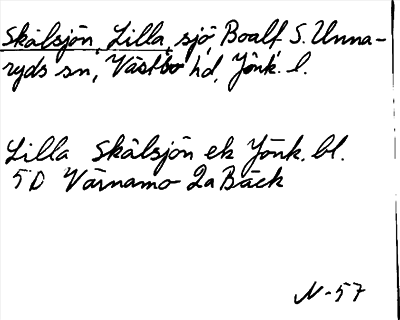 Skälsjön, Lilla, sjö, Boalt, S. Unna-
ryds sn, Västbo hd, Jönk. l.
Lilla Skälsjön ek Jönk. bl.
5D Värnamo 2a Bäck
N-57